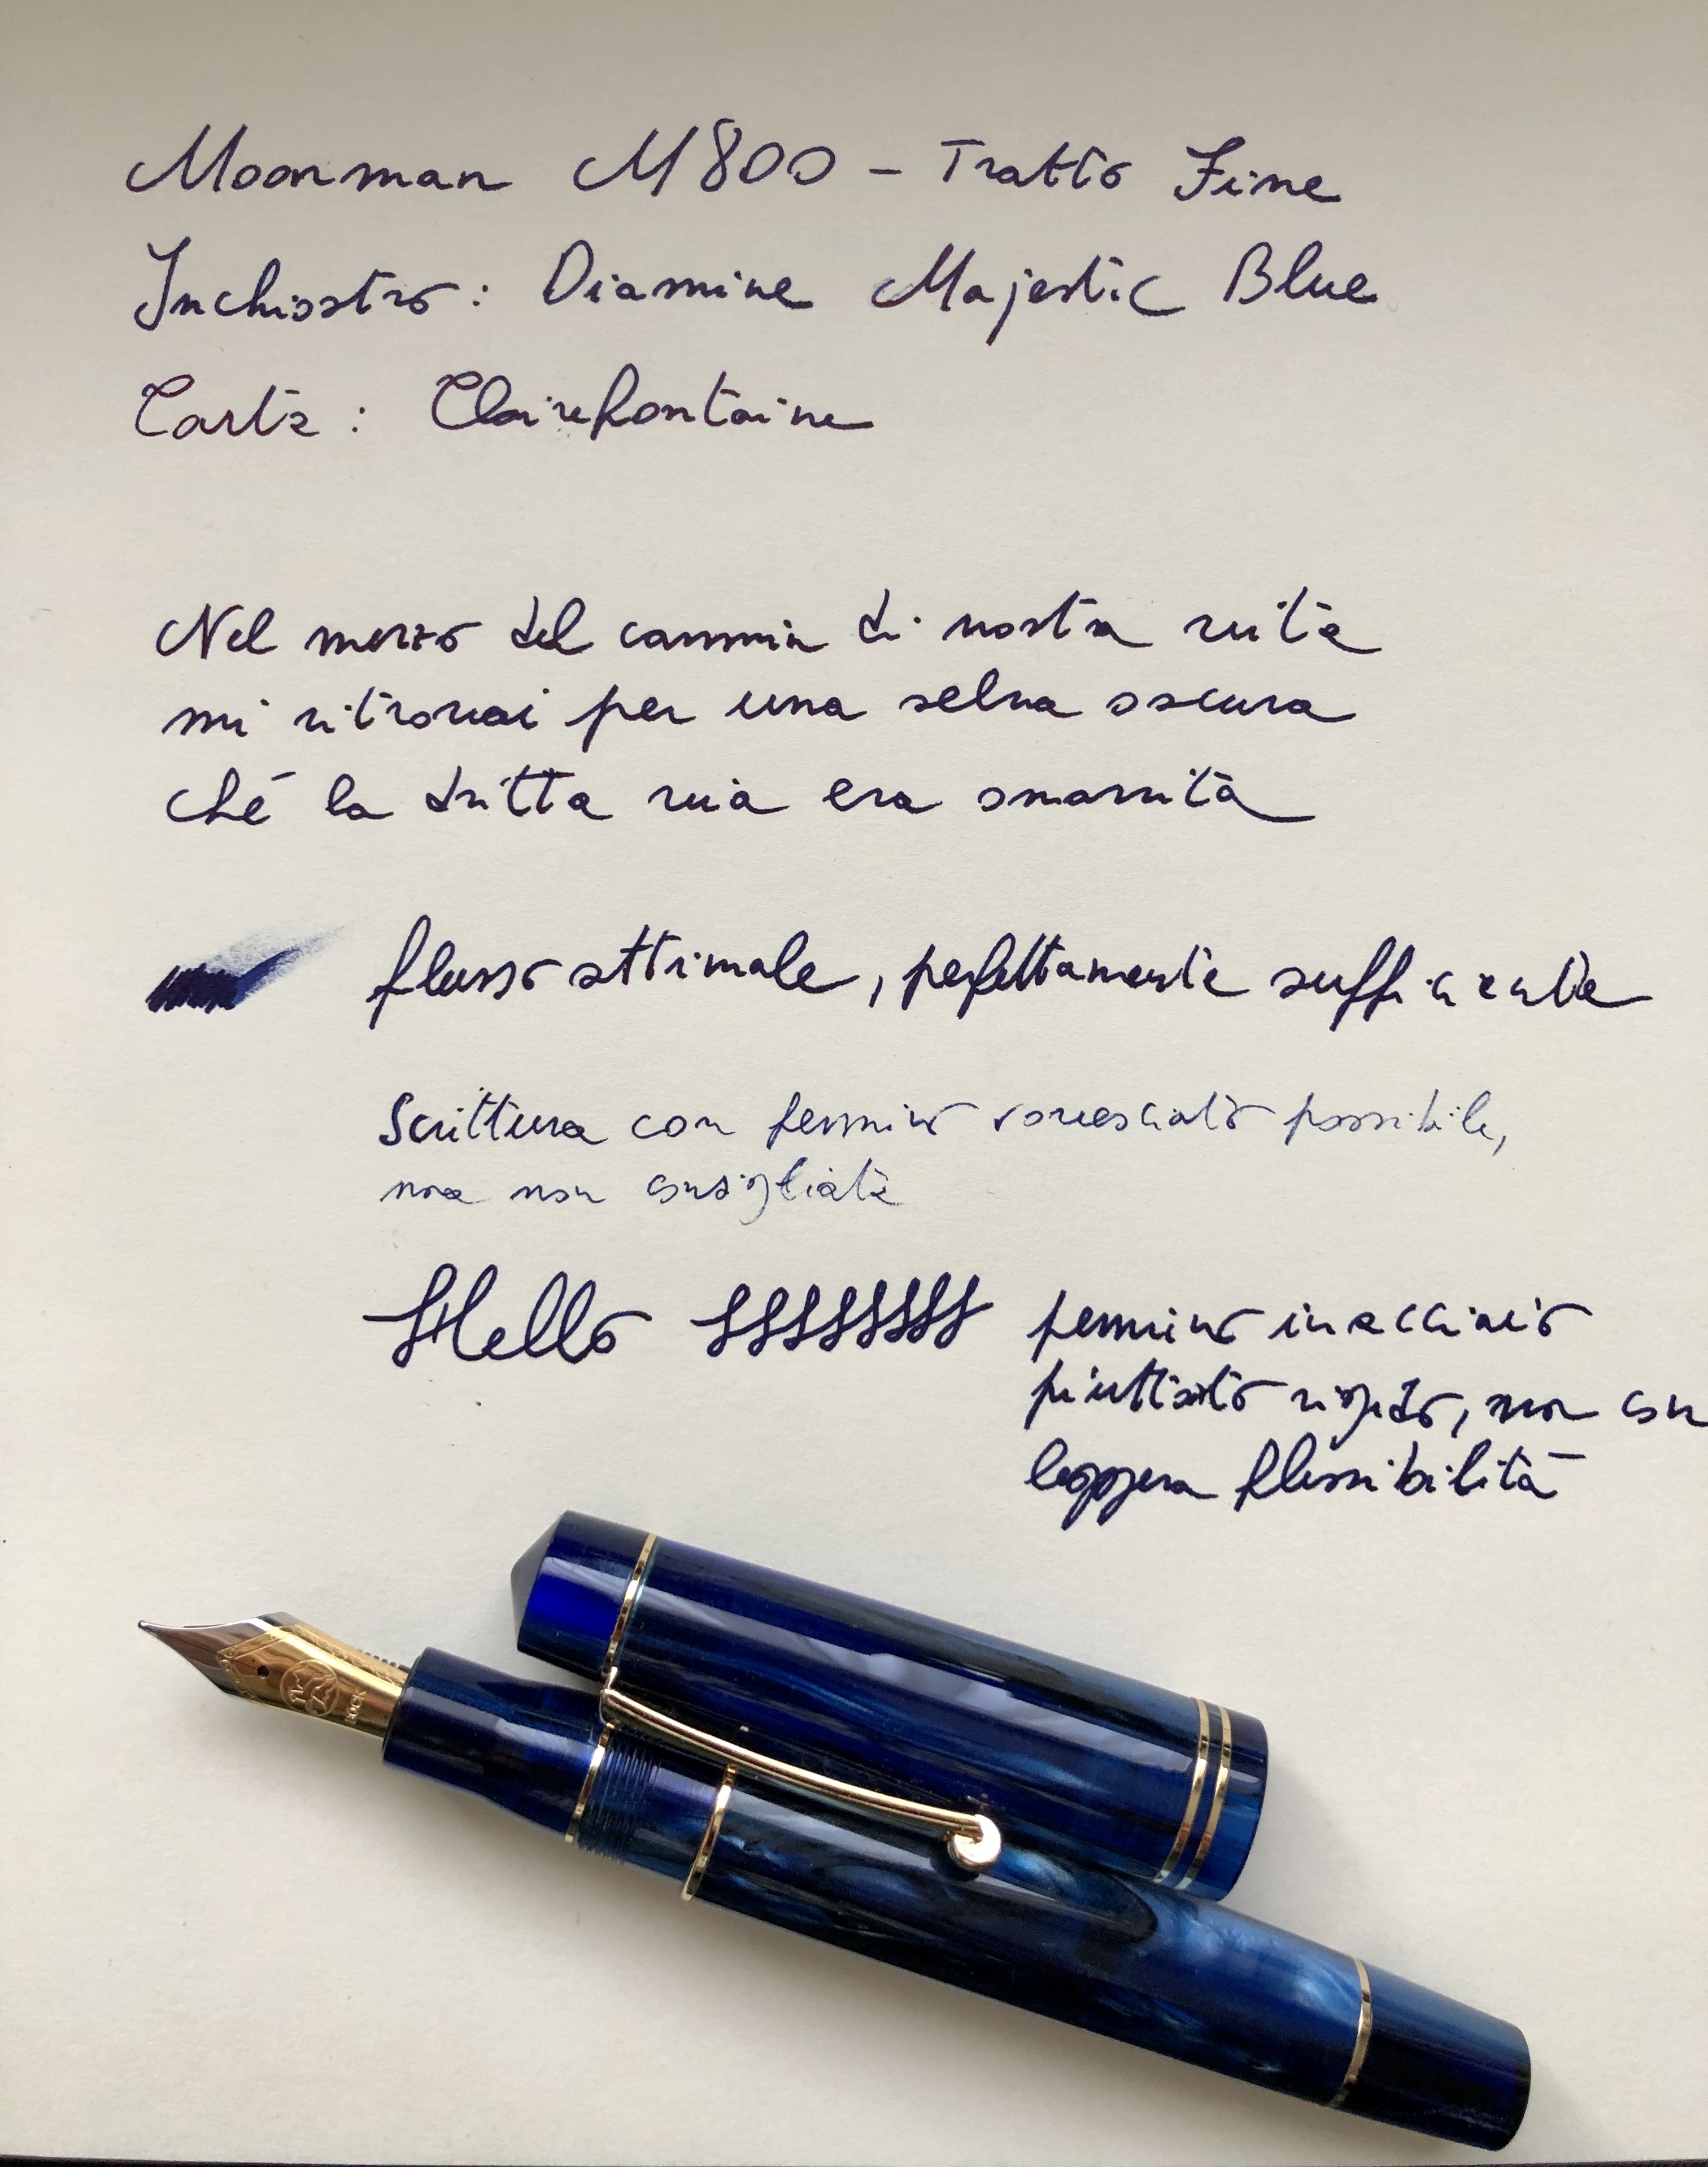 Moonman M800 - Tratto Fine
Inchiostro: Diamine Majestic Blue
Carta: Clairefontaine
Nel mezzo del cammin di nostra vita
mi ritrovai per una selva oscura
ché la dritta via era smarrita
flusso ottimale, perfettamente sufficiente
Scrittura con pennino rovesciato possibile,
ma non consigliata
Hello pennino in acciaio
piuttosto rigido, ma con
leggera flessibilità